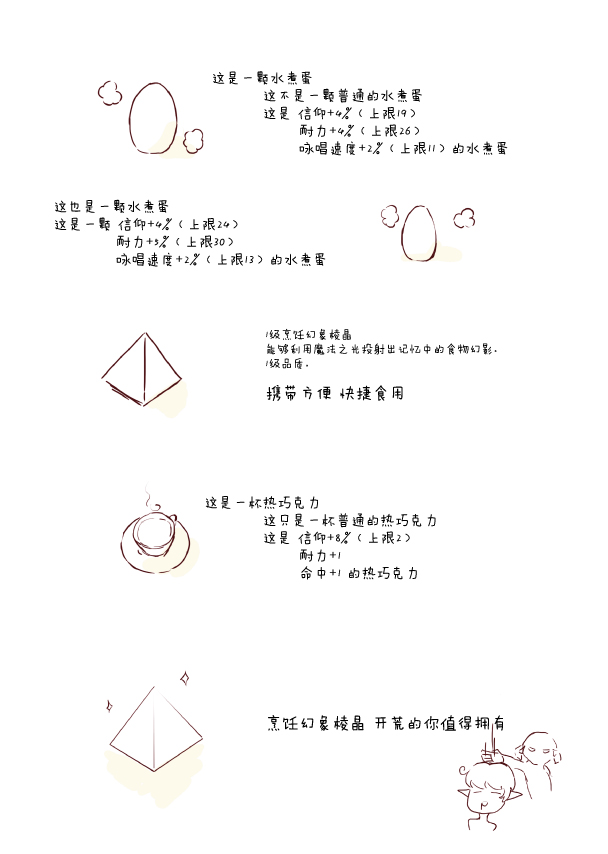 这是一颗水煮蛋
这不是一颗普通的水煮蛋
这是 信仰+4%（上限19）
耐力+4%（上限26）
咏唱速度+2%（上限11）的水煮蛋
这也是一颗水煮蛋
这是一颗 信仰+4%（上限24）
耐力+5%（上限30）
咏唱速度+2%（上限13）的水煮蛋
1级烹饪幻象棱晶
能够利用魔法之光投射出记忆中的食物幻影.
1级品质.
携带方便 快捷食用
这是一杯热巧克力
这只是一杯普通的热巧克力
这是 信仰+8%（上限2）
耐力+1
命中+1 的热巧克力
烹饪幻象棱晶 开荒的你值得拥有